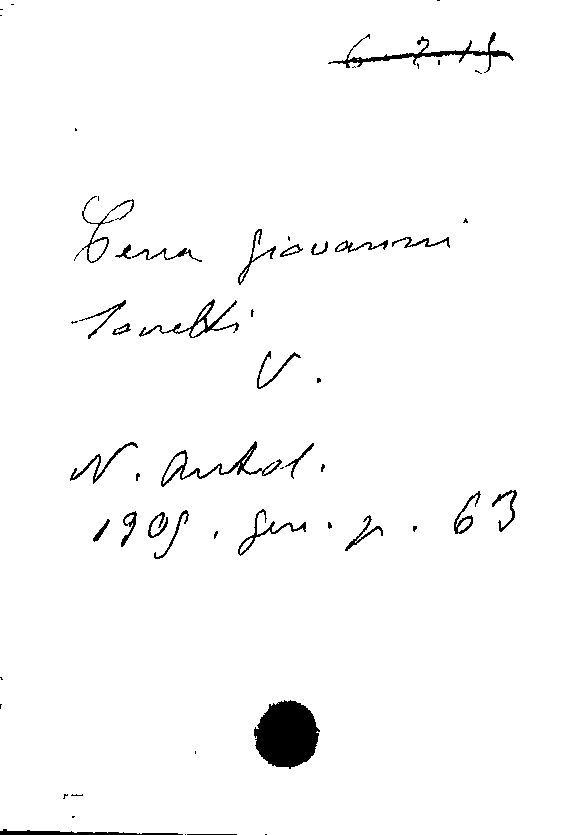 6. 2. 15
Cena Giovanni
Sonetti
V.
N. Antol.
1905. gen. p. 63